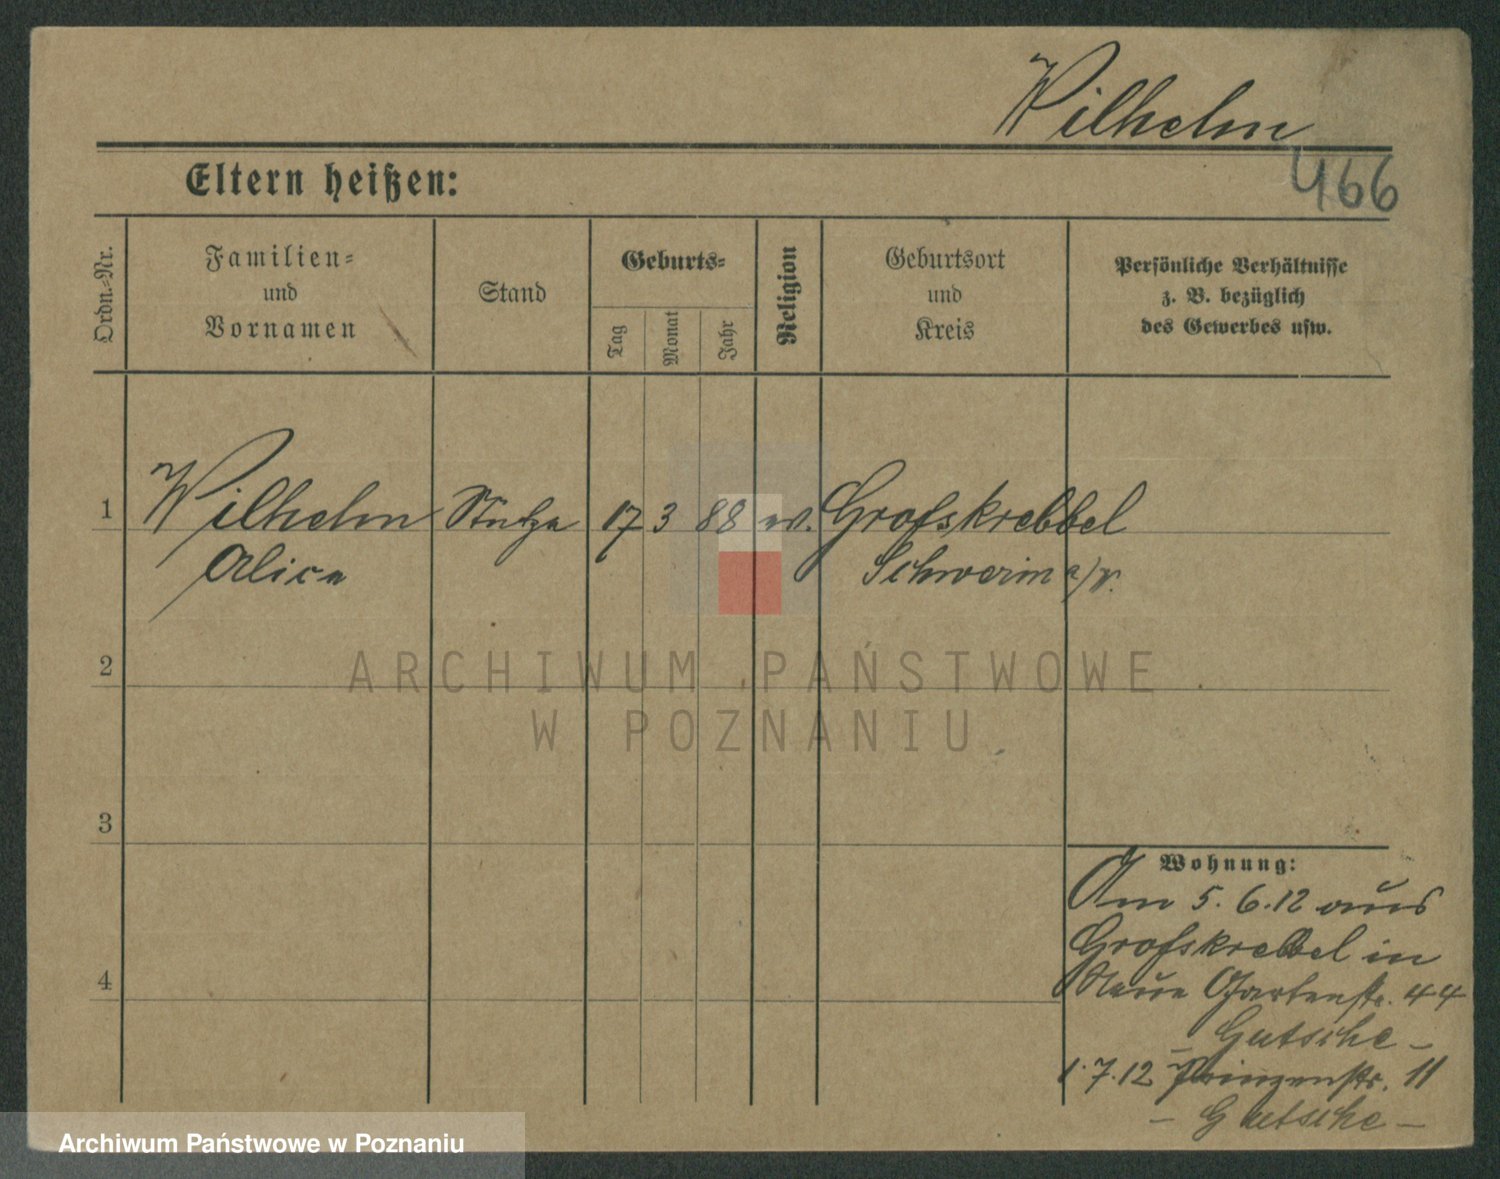 Wilhelm
466
Eltern heißen:
Ordn.-Nr.
Familien-
und
Vornamen
Stand
Geburts-
Tag
Monat
Jahr
Religion
Geburtsort
und
Kreis
Persönliche Verhältnisse
z. B. bezüglich
des Gewerbes usw.
1 Wilhelm Stütze 17 3 88 ev. Großkrebbel
Alice Schwerin a/W.
2
3
4
Wohnung:
Am 5. 6. 12 aus
Großkrebbel in
Neue Gartenstr. 44
– Gutsche –
1. 7. 12 Prinzenstr. 11
– Gutsche –
ARCHIWUM PAŃSTWOWE
W POZNANIU
Archiwum Państwowe w Poznaniu